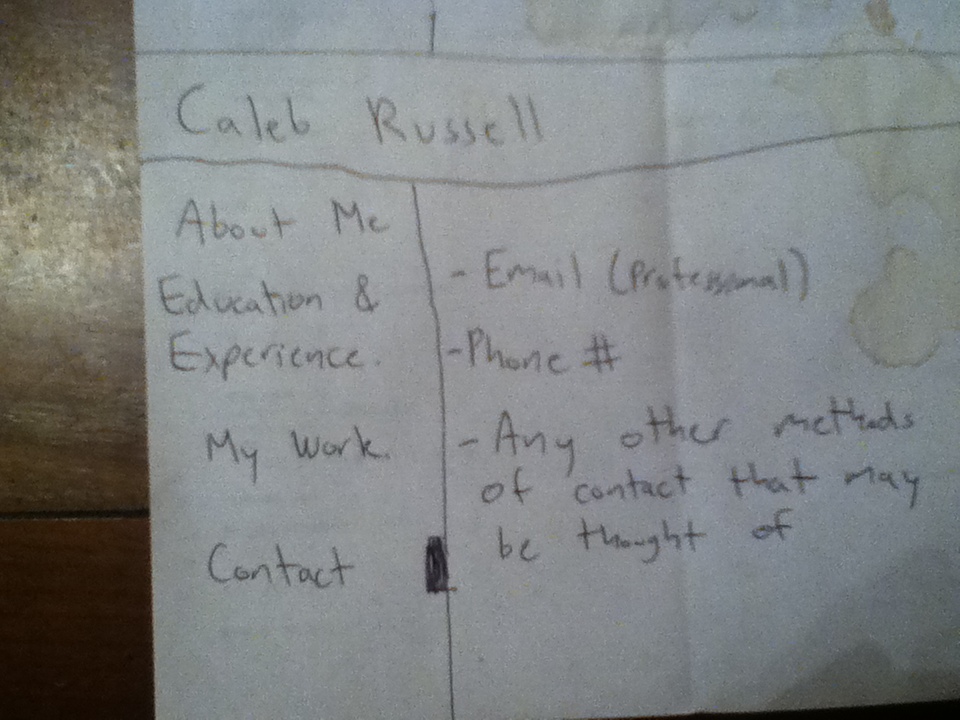 Caleb Russell
About Me
Education &
Experience.
My Work.
Contact
- Email (Professional)
- Phone #
- Any other methods
of contact that may
be thought of